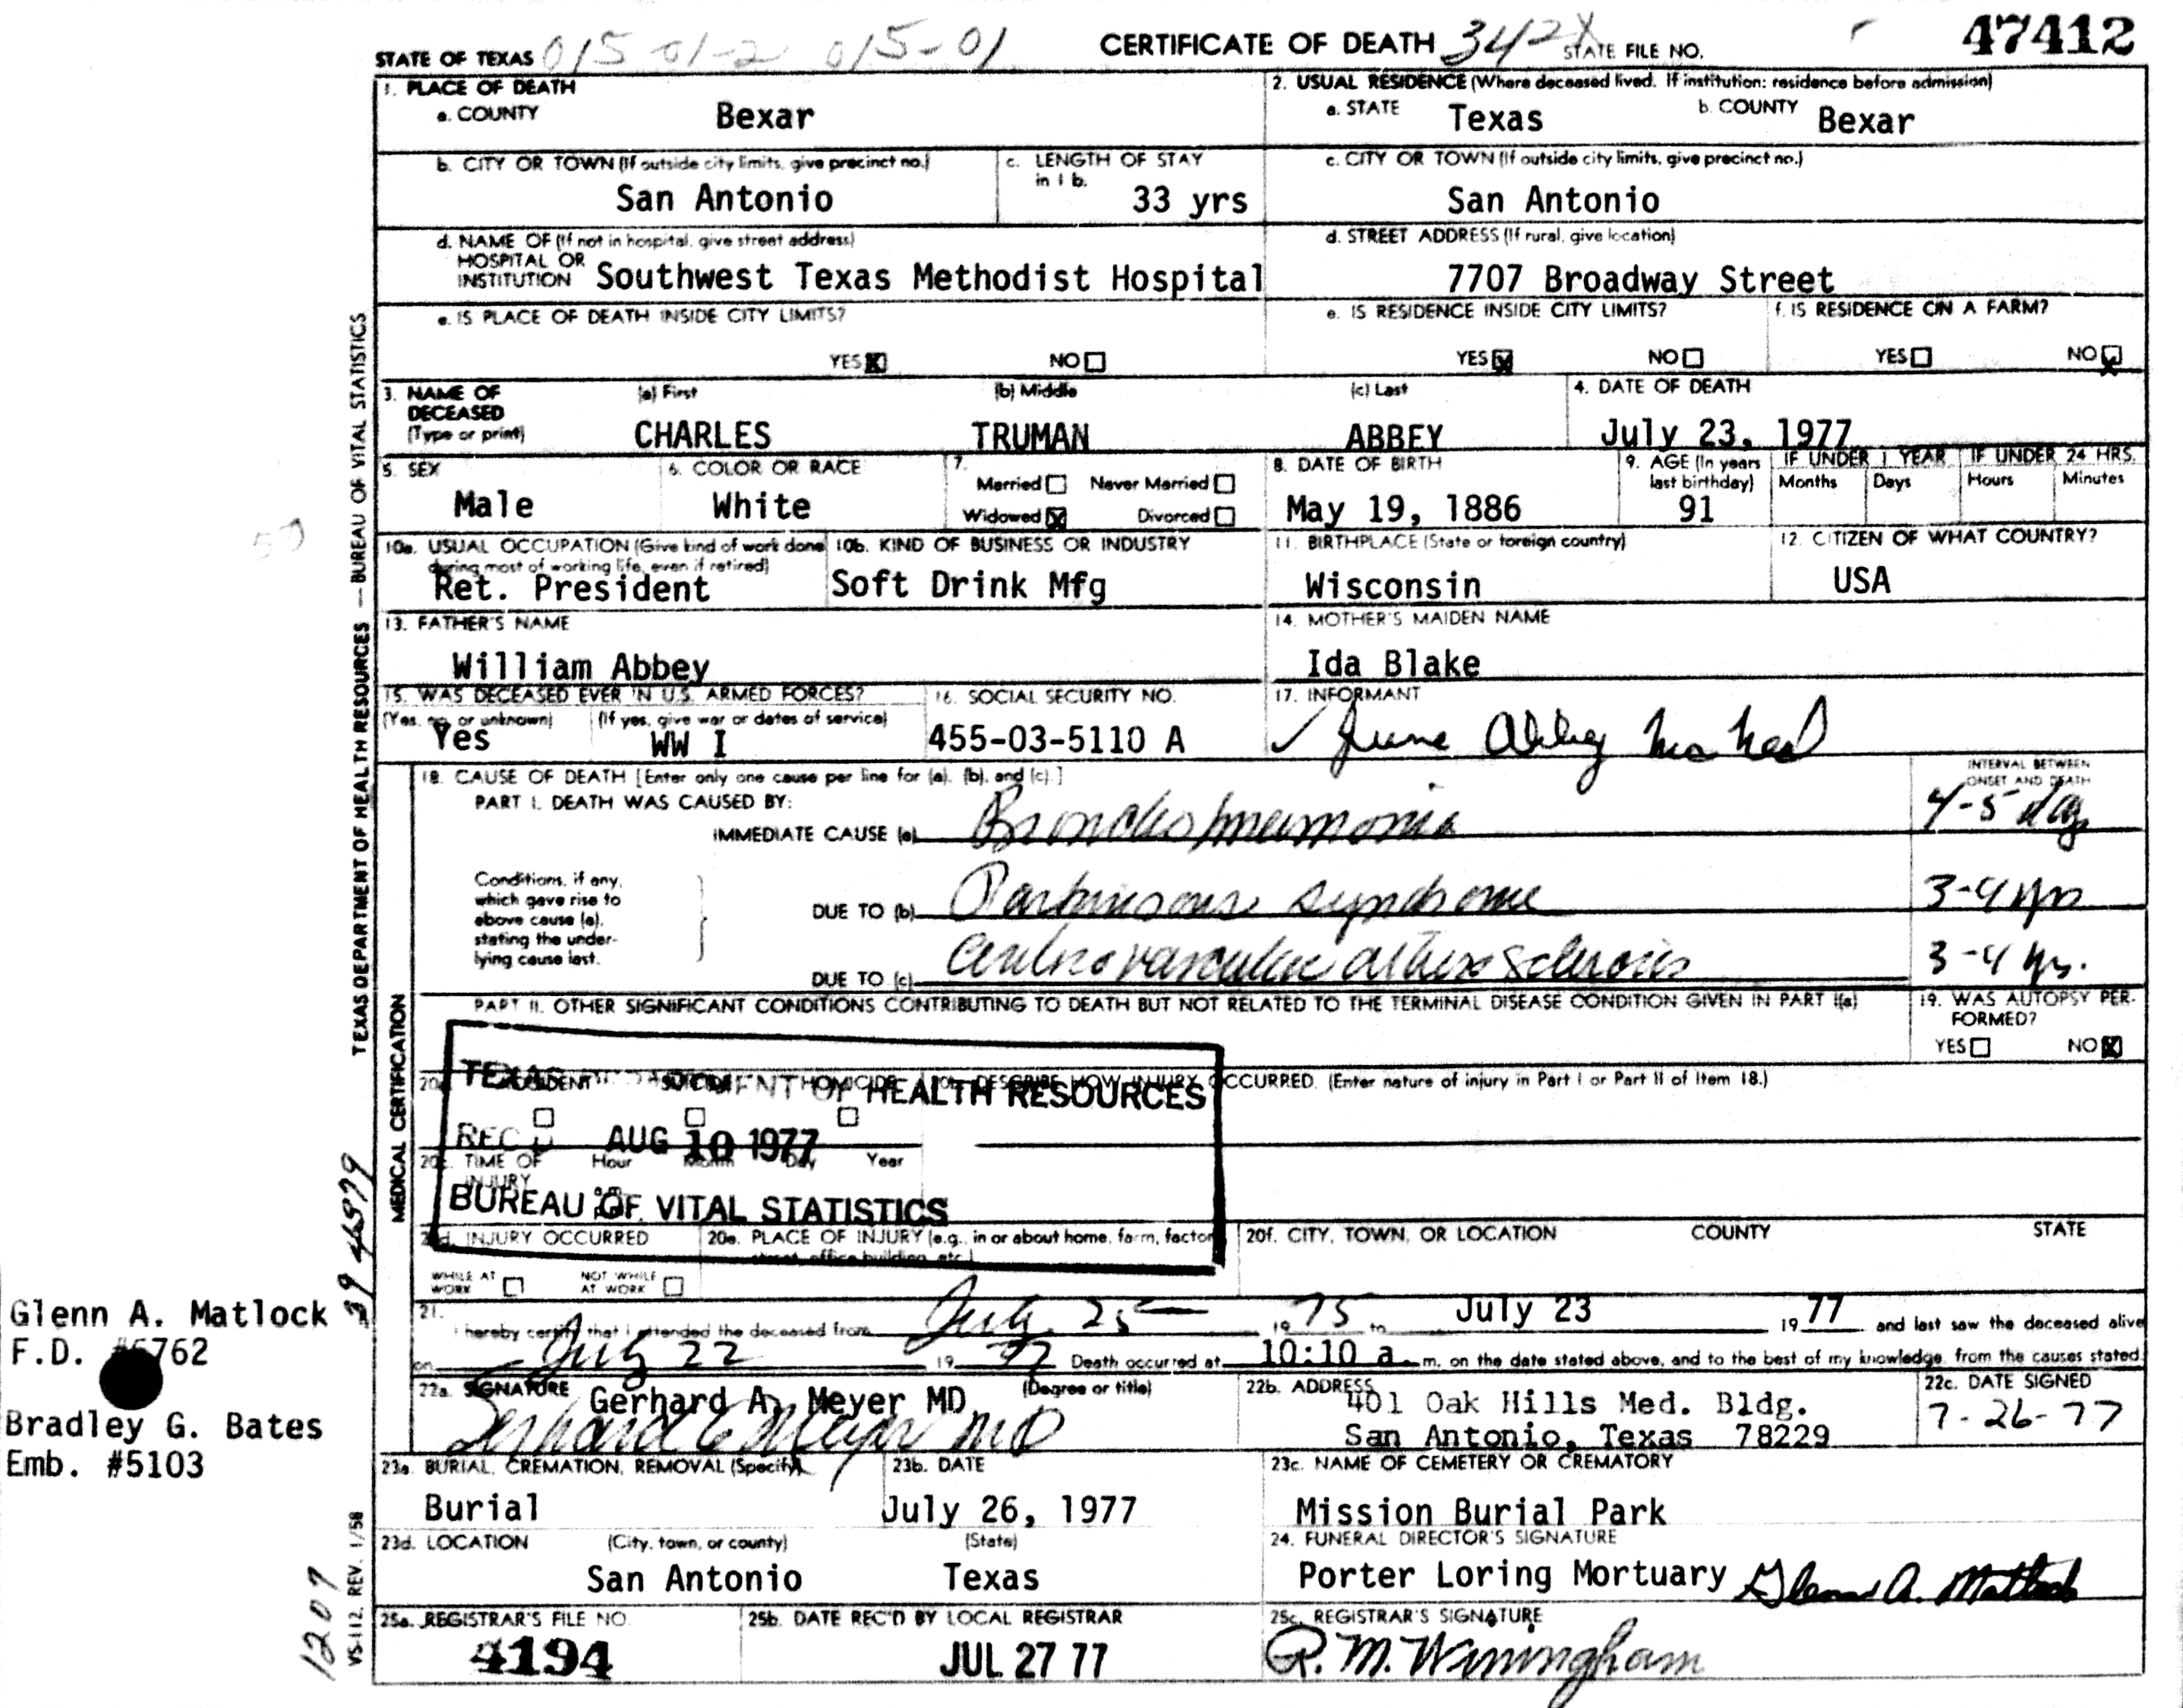 STATE OF TEXAS 015-01-2 015-01 CERTIFICATE OF DEATH 342X STATE FILE NO. 47412
1. PLACE OF DEATH
a. COUNTY Bexar
2. USUAL RESIDENCE (Where deceased lived. If institution: residence before admission)
a. STATE Texas b. COUNTY Bexar
b. CITY OR TOWN (If outside city limits, give precinct no.)
San Antonio
c. LENGTH OF STAY in 1 b.
33 yrs
c. CITY OR TOWN (If outside city limits, give precinct no.)
San Antonio
d. NAME OF (If not in hospital, give street address)
HOSPITAL OR
INSTITUTION Southwest Texas Methodist Hospital
d. STREET ADDRESS (If rural, give location)
7707 Broadway Street
e. IS PLACE OF DEATH INSIDE CITY LIMITS?
YES X NO
e. IS RESIDENCE INSIDE CITY LIMITS?
YES X NO
f. IS RESIDENCE ON A FARM?
YES NO X
3. NAME OF DECEASED (Type or print)
(a) First (b) Middle (c) Last
CHARLES TRUMAN ABBEY
4. DATE OF DEATH
July 23, 1977
5. SEX
Male
6. COLOR OR RACE
White
7. Married Never Married
Widowed X Divorced
8. DATE OF BIRTH
May 19, 1886
9. AGE (In years last birthday)
91
IF UNDER 1 YEAR
Months Days
IF UNDER 24 HRS.
Hours Minutes
10a. USUAL OCCUPATION (Give kind of work done during most of working life, even if retired)
Ret. President
10b. KIND OF BUSINESS OR INDUSTRY
Soft Drink Mfg
11. BIRTHPLACE (State or foreign country)
Wisconsin
12. CITIZEN OF WHAT COUNTRY?
USA
13. FATHER'S NAME
William Abbey
14. MOTHER'S MAIDEN NAME
Ida Blake
15. WAS DECEASED EVER IN U.S. ARMED FORCES?
(Yes, no, or unknown) (If yes, give war or dates of service)
Yes WW I
16. SOCIAL SECURITY NO.
455-03-5110 A
17. INFORMANT
June Abbey
MEDICAL CERTIFICATION
18. CAUSE OF DEATH [Enter only one cause per line for (a), (b), and (c).]
INTERVAL BETWEEN ONSET AND DEATH
PART I. DEATH WAS CAUSED BY:
IMMEDIATE CAUSE (a) Bronchopneumonia 4-5 days
Conditions, if any, which gave rise to above cause (a), stating the underlying cause last.
DUE TO (b) Parkinsons syndrome 3-4 yrs
DUE TO (c) cerebrovascular atherosclerosis 3-4 yrs.
PART II. OTHER SIGNIFICANT CONDITIONS CONTRIBUTING TO DEATH BUT NOT RELATED TO THE TERMINAL DISEASE CONDITION GIVEN IN PART I(a)
19. WAS AUTOPSY PERFORMED?
YES NO X
20a. ACCIDENT SUICIDE HOMICIDE
20b. DESCRIBE HOW INJURY OCCURRED. (Enter nature of injury in Part I or Part II of Item 18.)
TEXAS DEPARTMENT OF HEALTH RESOURCES
REC'D AUG 10 1977
BUREAU OF VITAL STATISTICS
20c. TIME OF INJURY Hour Month Day Year
20d. INJURY OCCURRED
WHILE AT WORK NOT WHILE AT WORK
20e. PLACE OF INJURY (e.g., in or about home, farm, factory, street, office building, etc.)
20f. CITY, TOWN, OR LOCATION COUNTY STATE
21. I hereby certify that I attended the deceased from July 25 1975 to July 23 1977 and last saw the deceased alive
on July 22 1977 Death occurred at 10:10 a. m. on the date stated above, and to the best of my knowledge, from the causes stated.
22a. SIGNATURE (Degree or title)
Gerhard A. Meyer MD
22b. ADDRESS
401 Oak Hills Med. Bldg.
San Antonio, Texas 78229
22c. DATE SIGNED
7-26-77
23a. BURIAL, CREMATION, REMOVAL (Specify)
Burial
23b. DATE
July 26, 1977
23c. NAME OF CEMETERY OR CREMATORY
Mission Burial Park
23d. LOCATION (City, town, or county) (State)
San Antonio Texas
24. FUNERAL DIRECTOR'S SIGNATURE
Porter Loring Mortuary Glenn A. Matlock
25a. REGISTRAR'S FILE NO.
4194
25b. DATE REC'D BY LOCAL REGISTRAR
JUL 27 77
25c. REGISTRAR'S SIGNATURE
P. M. Winingham
TEXAS DEPARTMENT OF HEALTH RESOURCES — BUREAU OF VITAL STATISTICS
Glenn A. Matlock
F.D. 762
Bradley G. Bates
Emb. #5103
VS-112, REV. 1/58
1207